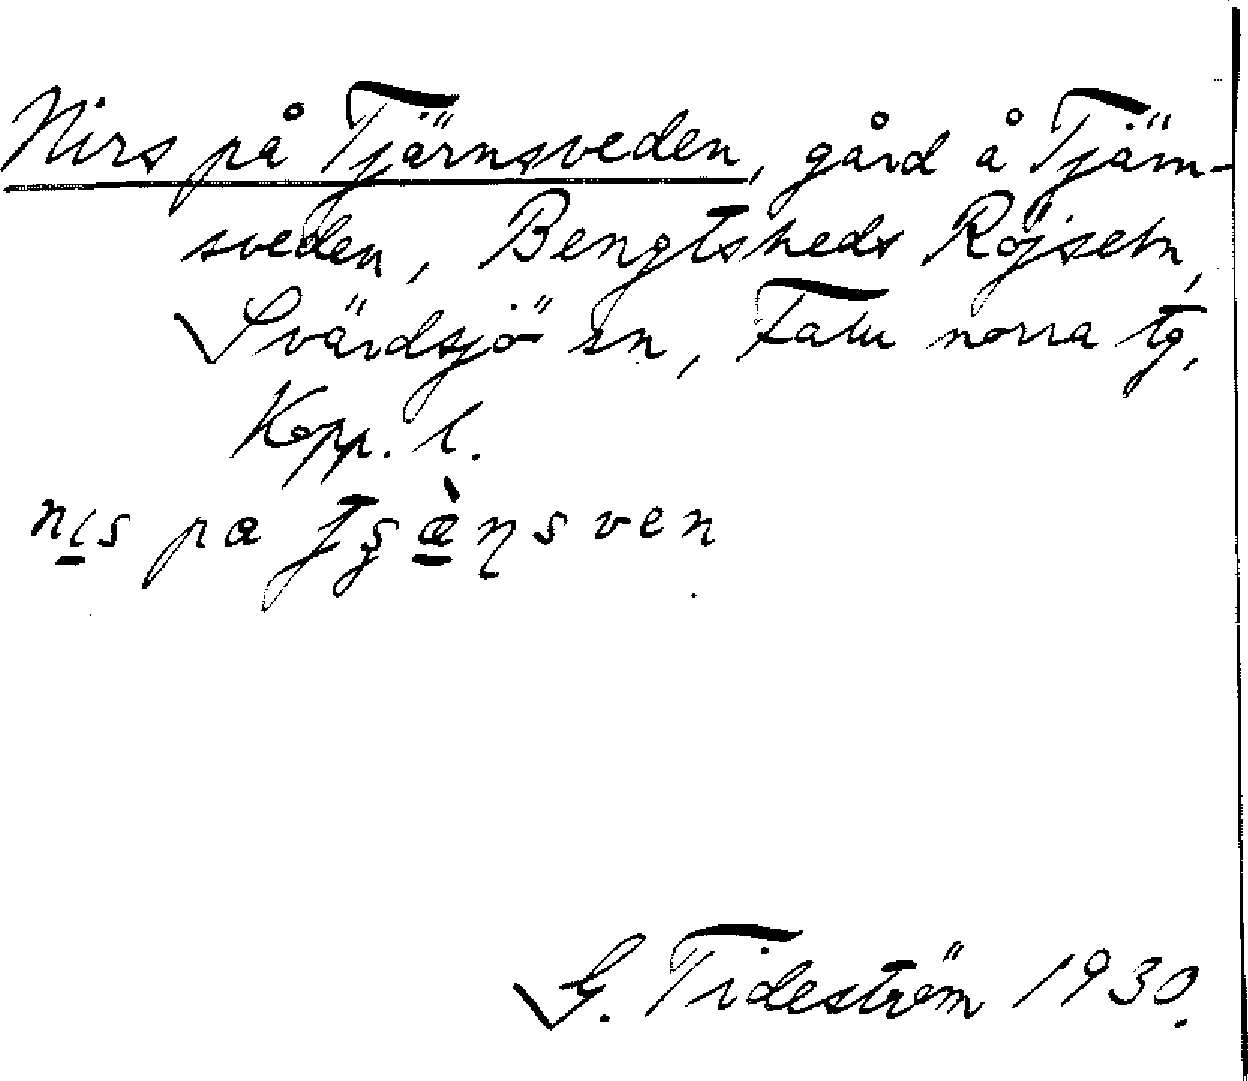 Nirs på Tjärnsveden, gård å Tjärn-
sveden, Bengtsheds Röjseln,
Svärdsjö sn, Falu norra tg,
Kopp. l.
G. Tideström 1930.